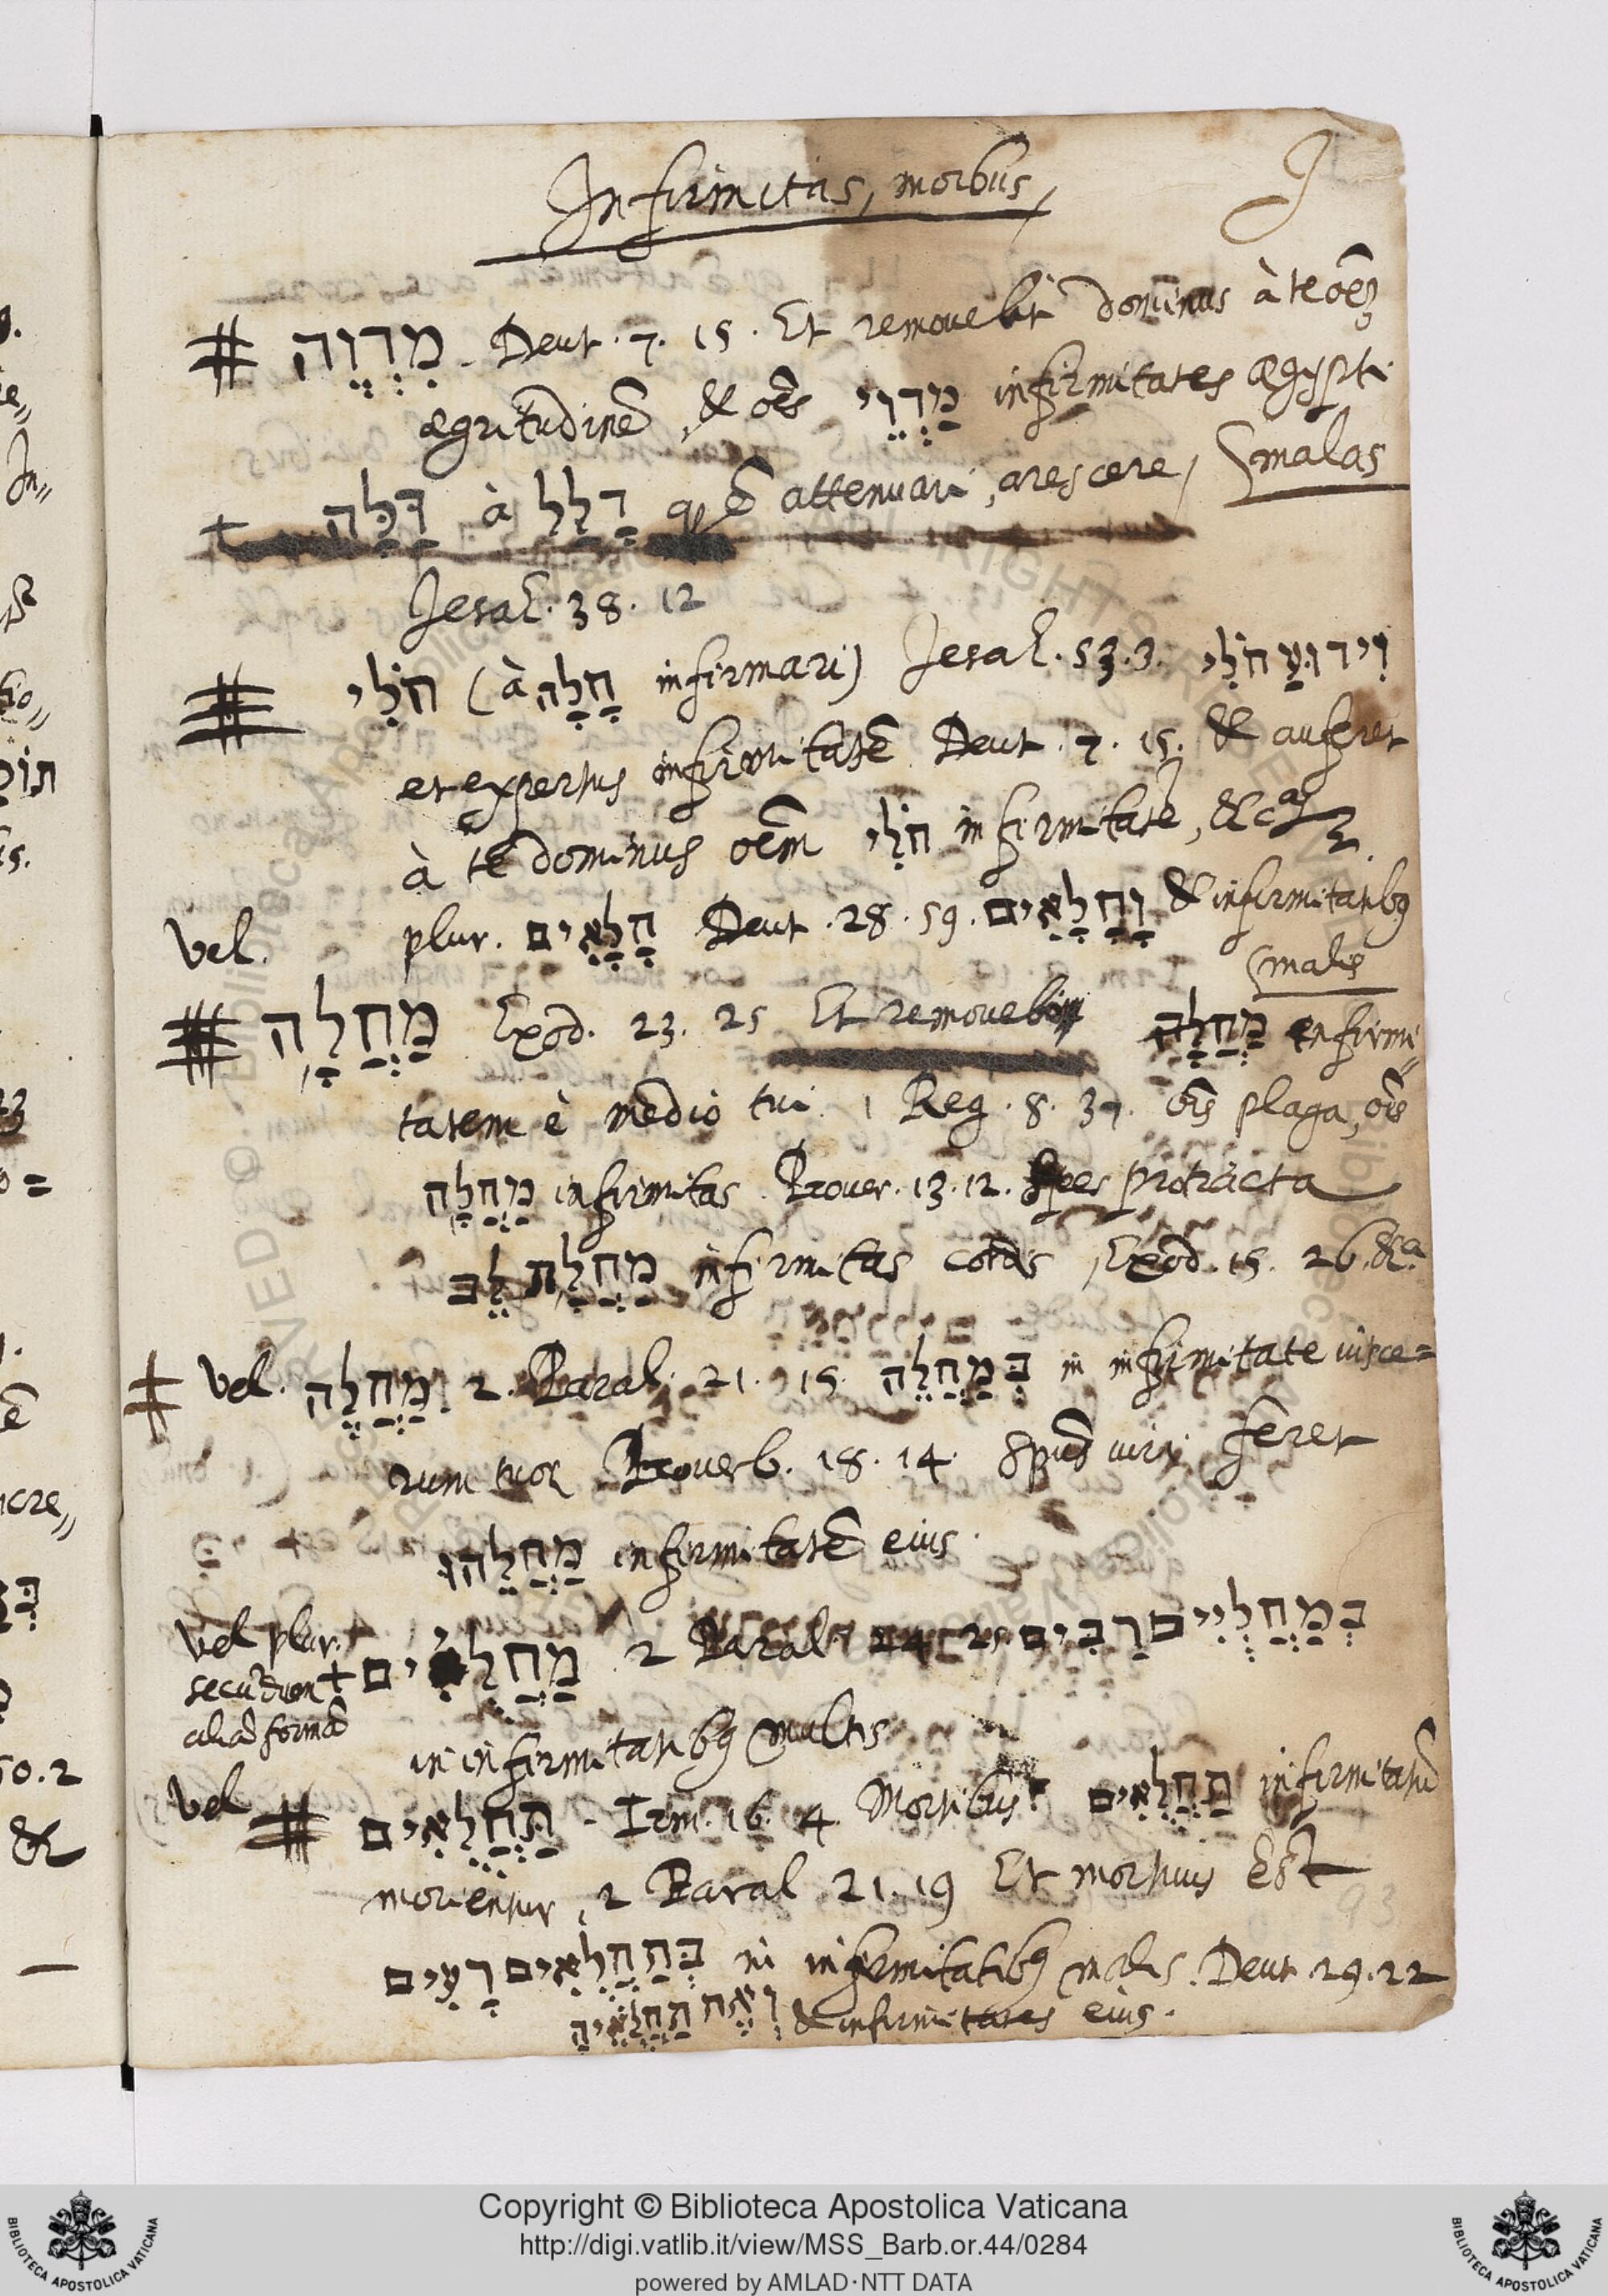 Infirmitas, morbus,
J
מִדְוֶה. Deut. 7. 15. Et removebit dominus à te oẽȝ
ægritudinẽ, & oẽs מַדְוֵי infirmitates ægypti
malas
דַּלָּה à דָּלַל attenuari, arescere,
Jesai. 38. 12
חֹלִי (à חָלָה infirmari) Jesai. 53. 3. וִידוּעַ חֹלִי
et expertus infirmitatẽ Deut. 7. 15. & auferet
à te dominus oẽm חֹלִי infirmitatẽ, &ca
Vel. plur. חֳלָאִים Deut. 28. 59. וָחֳלָאִים & infirmitatibꝰ
malis
מַחֲלָה Exod. 23. 25 Et removebo מַחֲלָה infirmi„
tatem è medio tui. 1 Reg. 8. 37. oĩs plaga, oĩs
מַחֲלָה infirmitas. Prover. 13. 12. Spes protracta
מַחֲלַת לֵב infirmitas cordis, Exod. 15. 26. &cª.
Vel. מַחֲלֶה 2. Paral. 21. 15. בְּמַחֲלֵה in infirmitate visce=
rum tuoꝝ Proverb. 18. 14. Spũs viri feret
מַחֲלֵהוּ infirmitatẽ eius.
Vel plur. secũdum aliã formã מַחֲלֻיִים 2 Paral. 24. 25. בְּמַחֲלֻיִים רַבִּים
in infirmitatibꝰ multis
Vel תַּחֲלֻאִים - Irm. 16. 4 Mortibus תַחֲלֻאִים infirmitatũ
morientur, 2 Paral 21. 19 Et mortuus Est
בְּתַחֲלֻאִים רָעִים in infirmitatibꝰ malis. Deut. 29. 22
וְאֶת תַּחֲלֻאֶיהָ & infirmitates eius.
Copyright © Biblioteca Apostolica Vaticana
http://digi.vatlib.it/view/MSS_Barb.or.44/0284
powered by AMLAD·NTT DATA
BIBLIOTECA APOSTOLICA VATICANA
BIBLIOTECA APOSTOLICA VATICANA